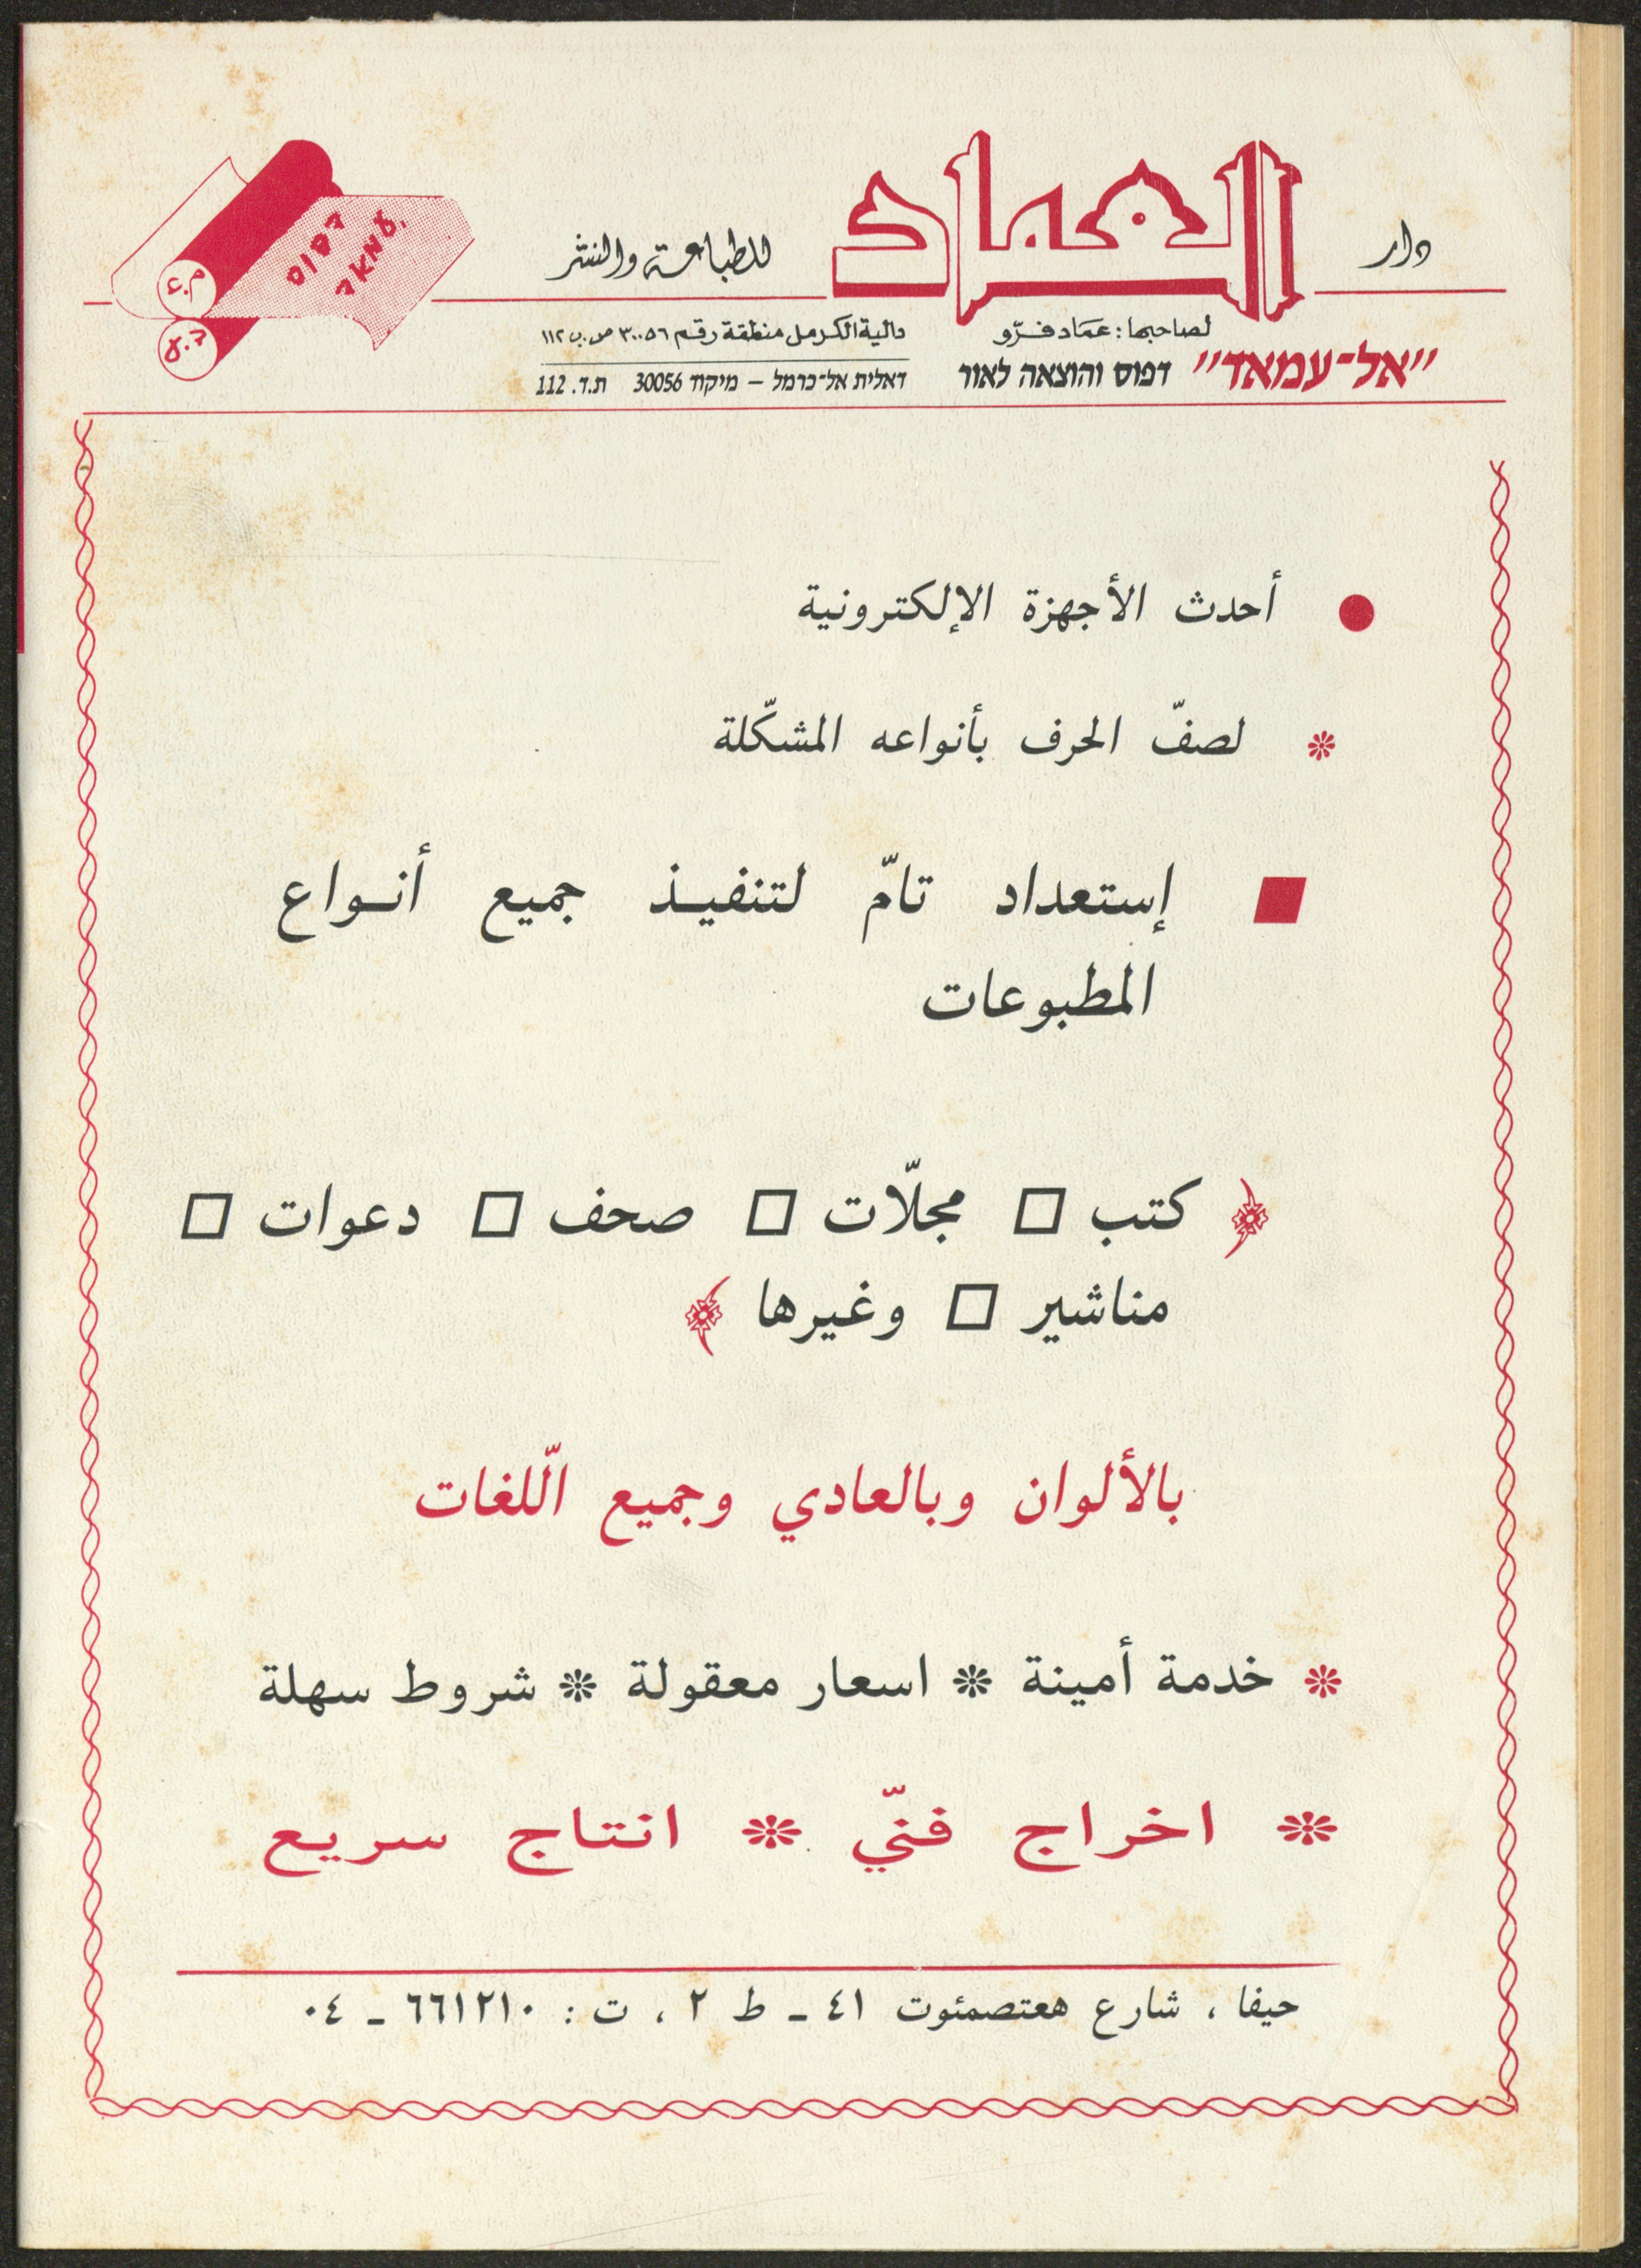 دار العماد للطباعة والنشر
لصاحبها: عماد فرّو
دالية الكرمل منطقة رقم ٣٠٠٥٦ ص.ب ١١٢
"אל-עמאד" דפוס והוצאה לאור
דאלית אל-כרמל – מיקוד 30056 ת.ד. 112
דפוס
עמאד
م.ع
ד.ע
● أحدث الأجهزة الإلكترونية
* لصفّ الحرف بأنواعه المشكّلة
■ إستعداد تامّ لتنفيـذ جميع أنـواع
المطبوعات
﴿ كتب □ مجلّات □ صحف □ دعوات □
مناشير □ وغيرها ﴾
بالألوان وبالعادي وجميع الّلغات
* خدمة أمينة * اسعار معقولة * شروط سهلة
* اخراج فنّي * انتاج سريع
حيفا ، شارع هعتصمئوت ٤١ - ط ٢ ، ت : ٦٦١٢١٠ - ٠٤